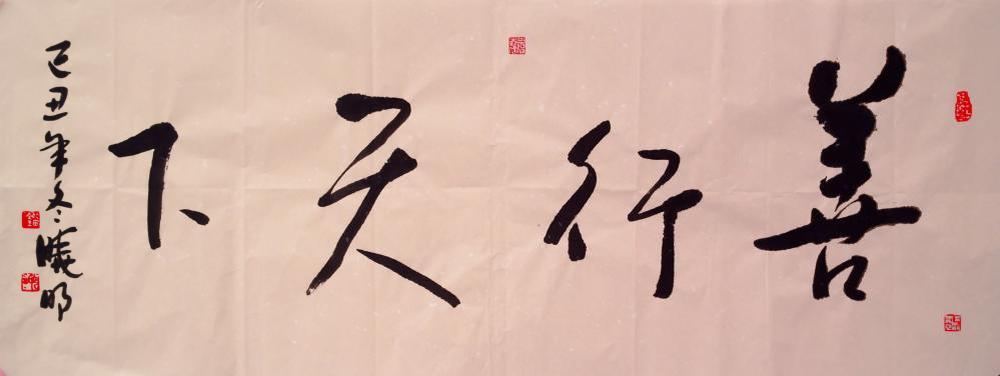 善行天下
己丑年冬曉明